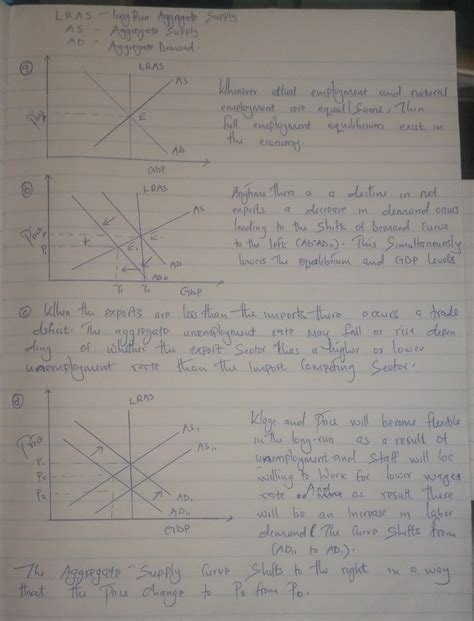 LRAS - Long Run Aggregate Supply
AS - Aggregate Supply
AD - Aggregate Demand.
(a)
LRAS
AS
Price
E
AD
GDP
Whenever actual employment and natural
employment are equal/same, Then
full employment equilibrium exist in
the economy.
(b)
LRAS
AS
Price
P
P1
E
E1
AD
AD0
Y1
Y0
GDP
Anytime there is a decline in net
exports a decrease in demand occurs
leading to the shift of Demand Curve
to the left (AD-AD0). This Simultaneously
lowers the equilibrium and GDP levels
(c) When the exports are less than the imports there occurs a trade
deficit. The aggregate unemployment rate may fall or rise depen
ding of whether the export Sector has a higher or lower
unemployment rate than the Import Competing Sector.
(d)
LRAS
AS1
AS11
Price
P1
P0
P2
AD1
AD11
GDP
Wage and Price will become flexible
in the long-run as a result of
unemployment and Staff will be
willing to Work for lower wages
rate And as result there
will be an Increase in labor
demand. The Curve Shifts from
(AD11 to AD1).
The Aggregate-Supply Curve Shifts to the right in a way
that the Price change to P0 from P0.